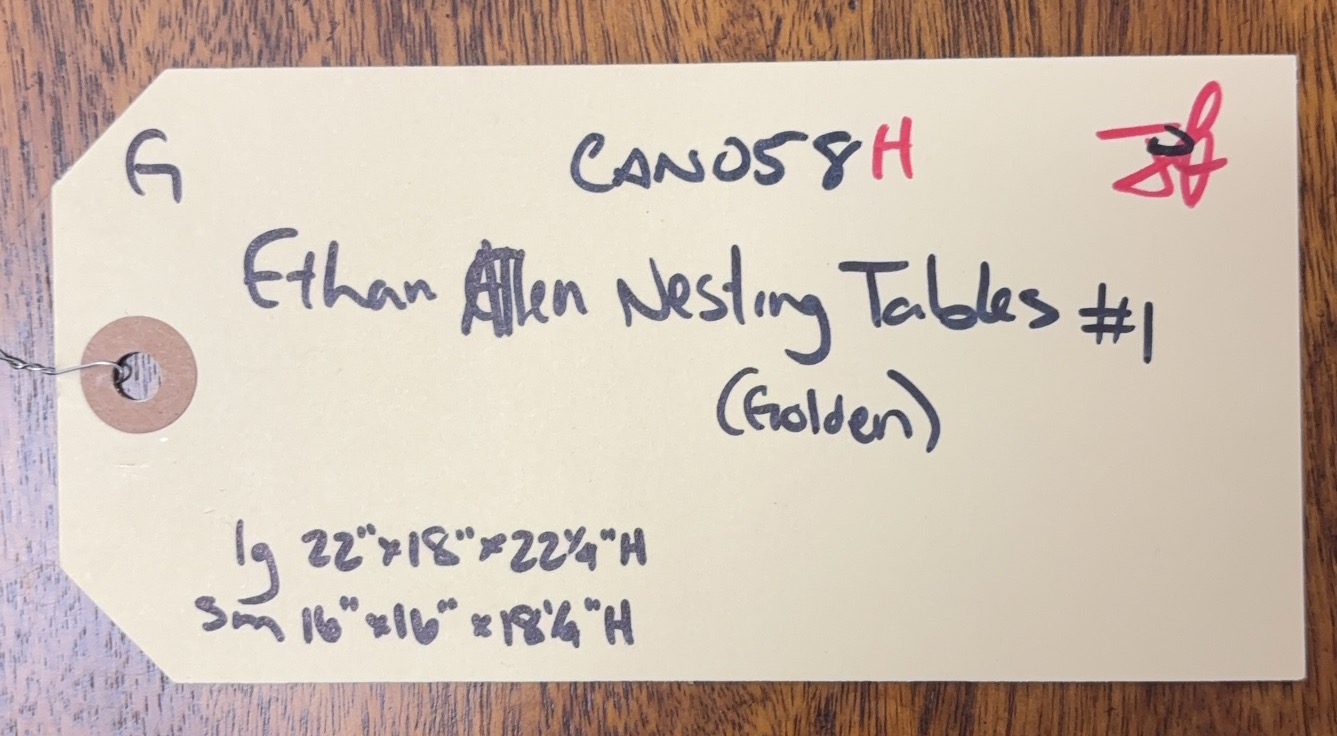 G CAN058H
Ethan Allen Nesting Tables #1
(Golden)
lg 22"x18"x22¼"H
Sm 16"x16"x18¼"H